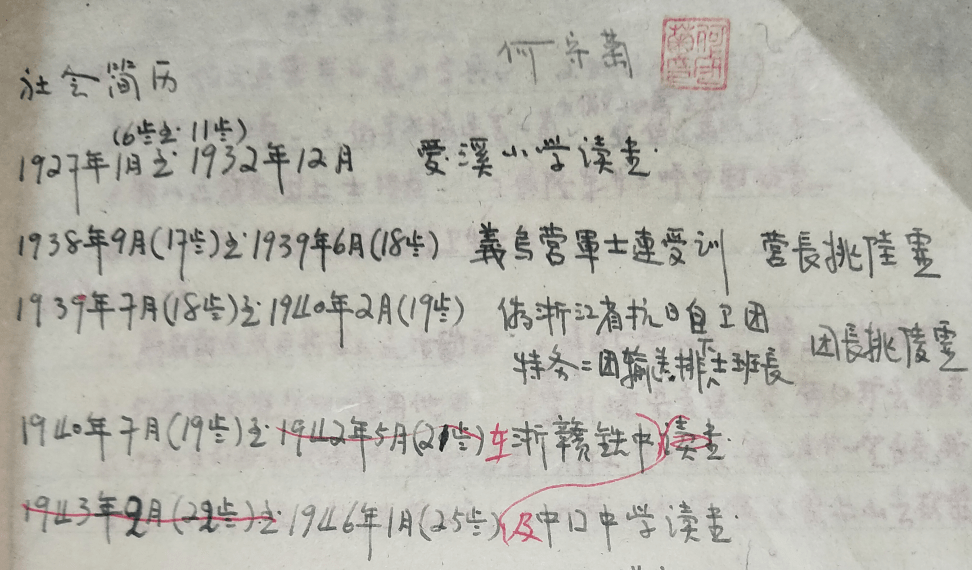 何守菊
社会简历
(6岁至11岁)
1927年1月至1932年12月 爱溪小学读书.
1938年9月(17岁)至1939年6月(18岁) 義乌营軍士連受训 营長挑陸霊
1939年7月(18岁)至1940年2月(19岁) 伪浙江省抗日自卫团
特务=团輸送排下士班長 团長挑陵霊
1940年7月(19岁)至1942年5月(21岁)在浙赣铁中读书.
1943年2月(22岁)至1946年1月(25岁)及中口中学读书.